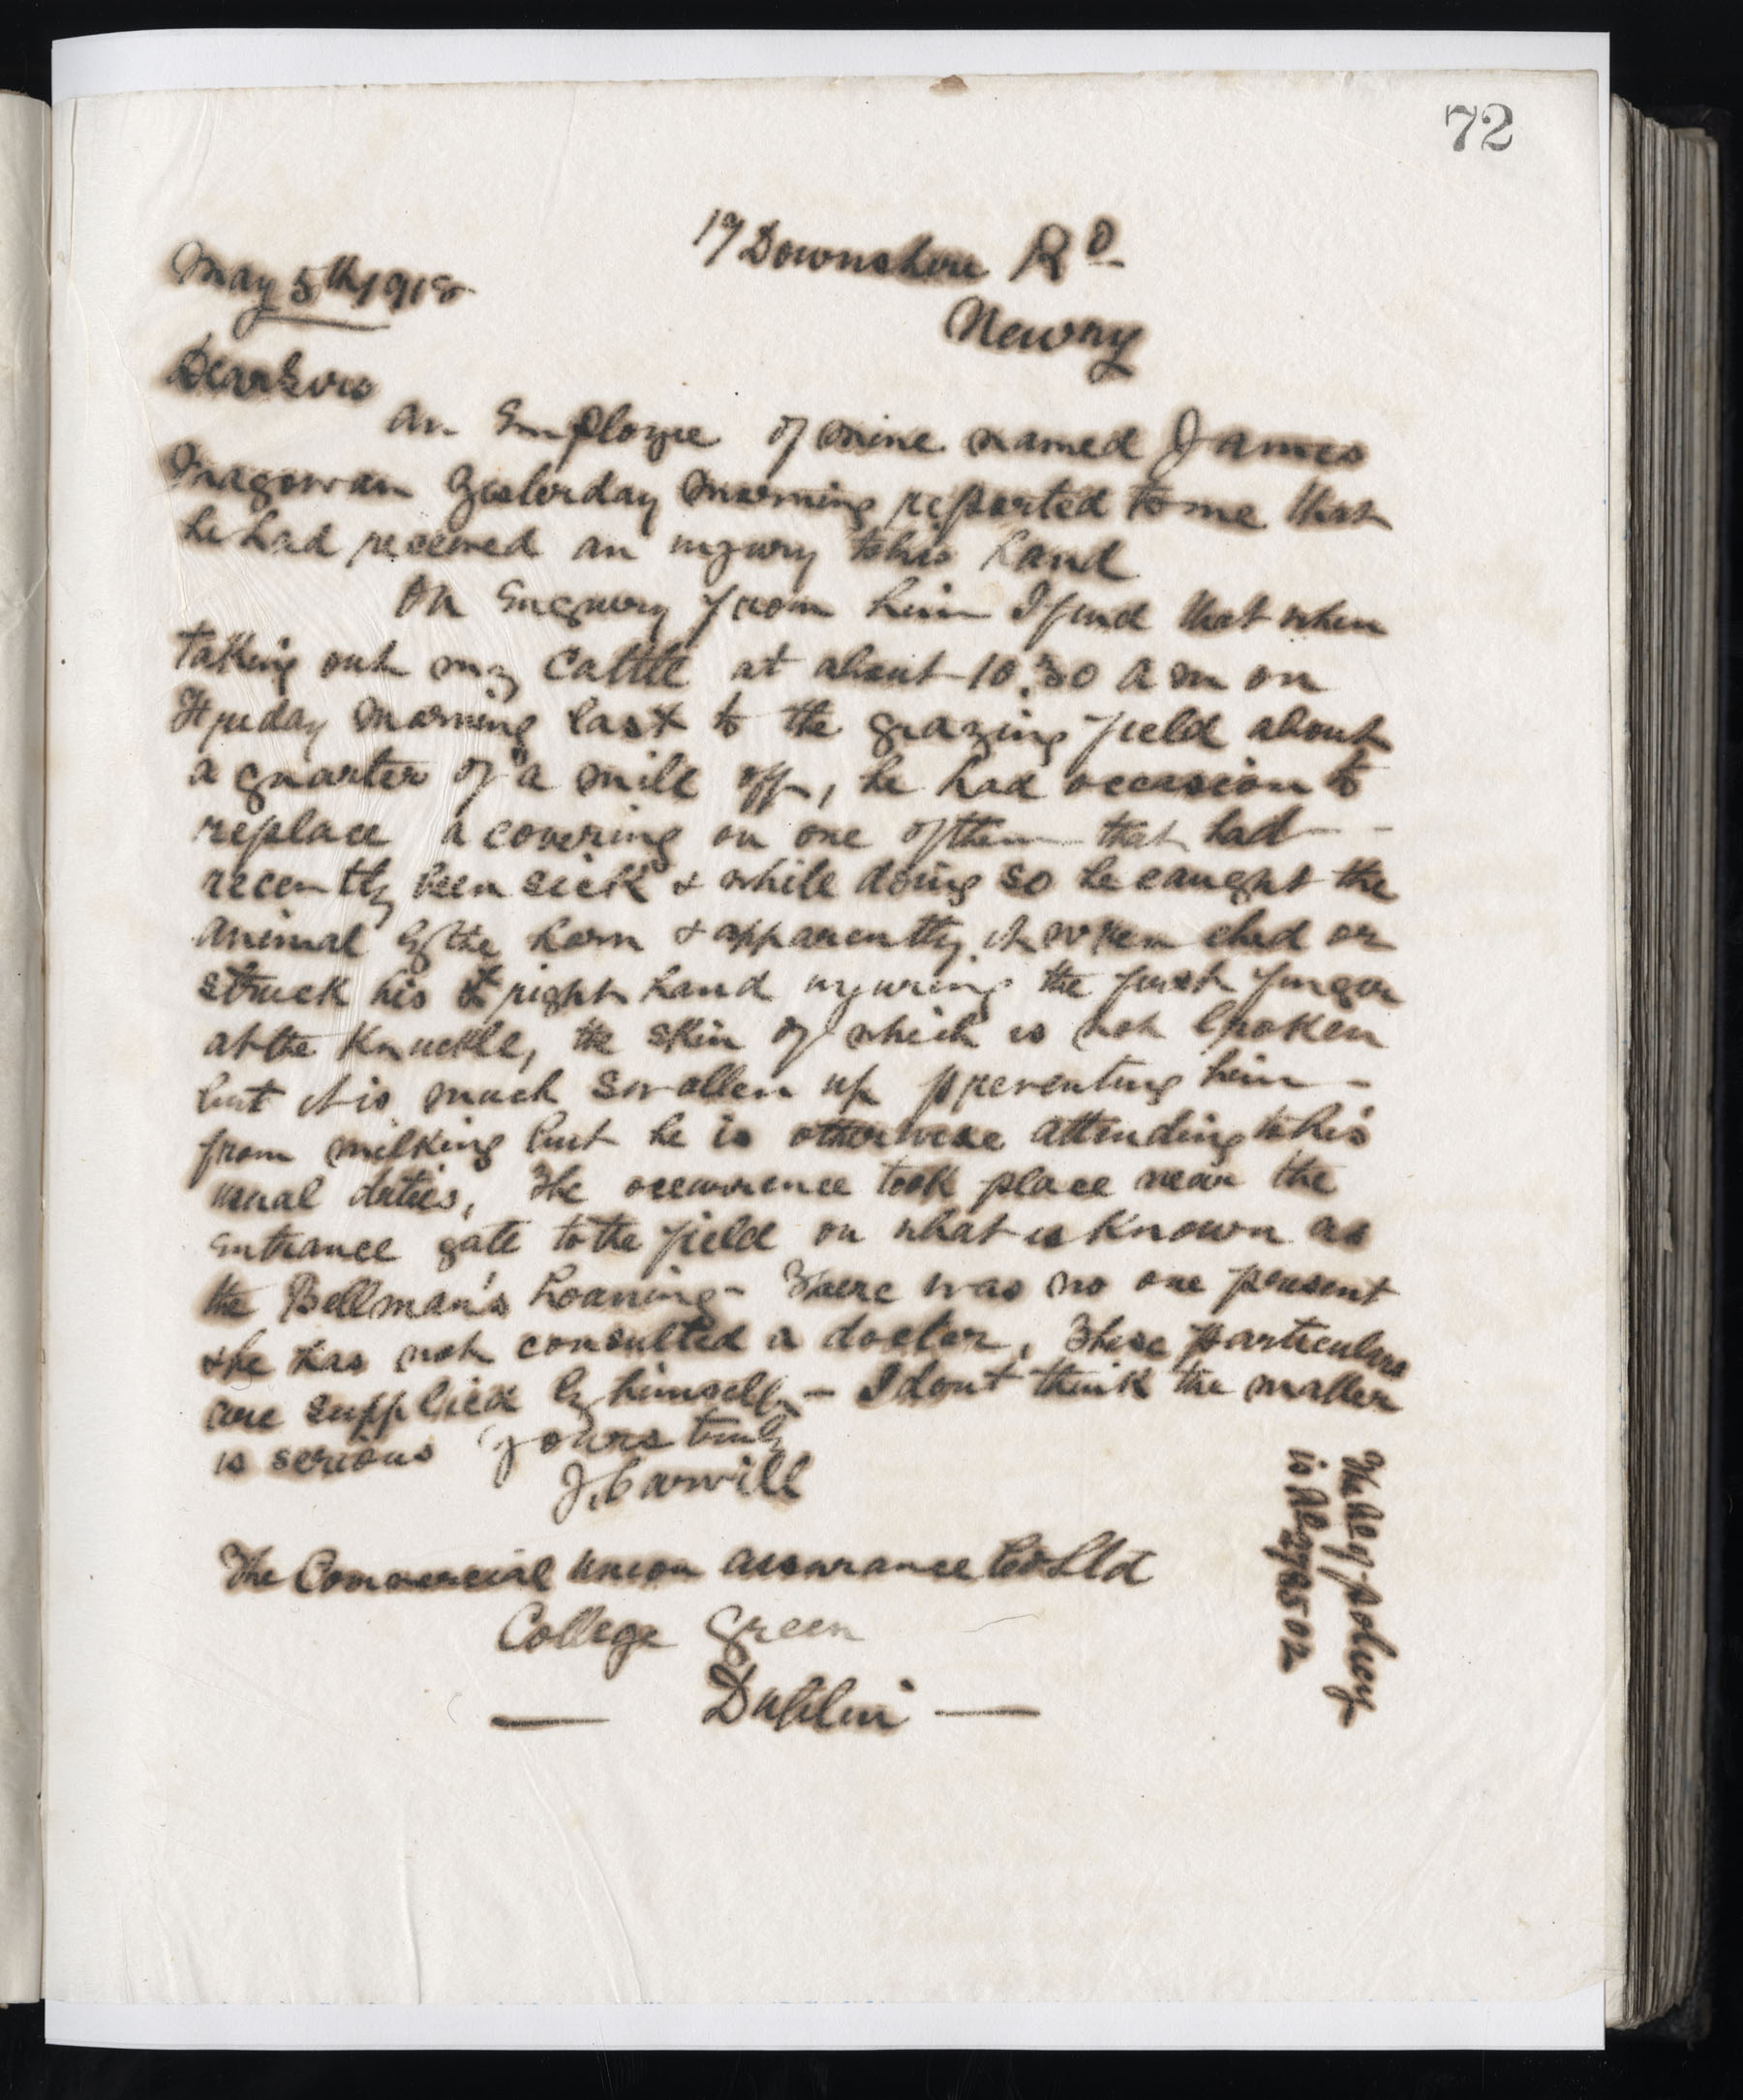 72
17 Downshire Rd
May 5th 1918
Newry
Dear Sirs
An Employee of mine named James
Magowan yesterday morning reported to me that
he had received an injury to his hand
On Enquiry from him I find that when
taking out my cattle at about 10.30 a m on
Friday morning last to the grazing field about
a quarter of a mile off, he had occasion to
replace a covering on one of them that had -
recently been sick & while doing so he caught the
animal by the horn & apparently it wrenched or
struck his right hand injuring the first finger
at the knuckle, the skin of which is not broken
but it is much swollen up preventing him -
from milking but he is otherwise attending to his
usual duties, The occurrence took place near the
entrance gate to the field on what is known as
the Bellman's Loaning - There was no one present
& he has not consulted a doctor, These particulars
are supplied by himself - I dont think the matter
is serious Yours truly
J. Carvill
The Commercial Union Assurance Co Ltd
College Green
Dublin
The policy
is